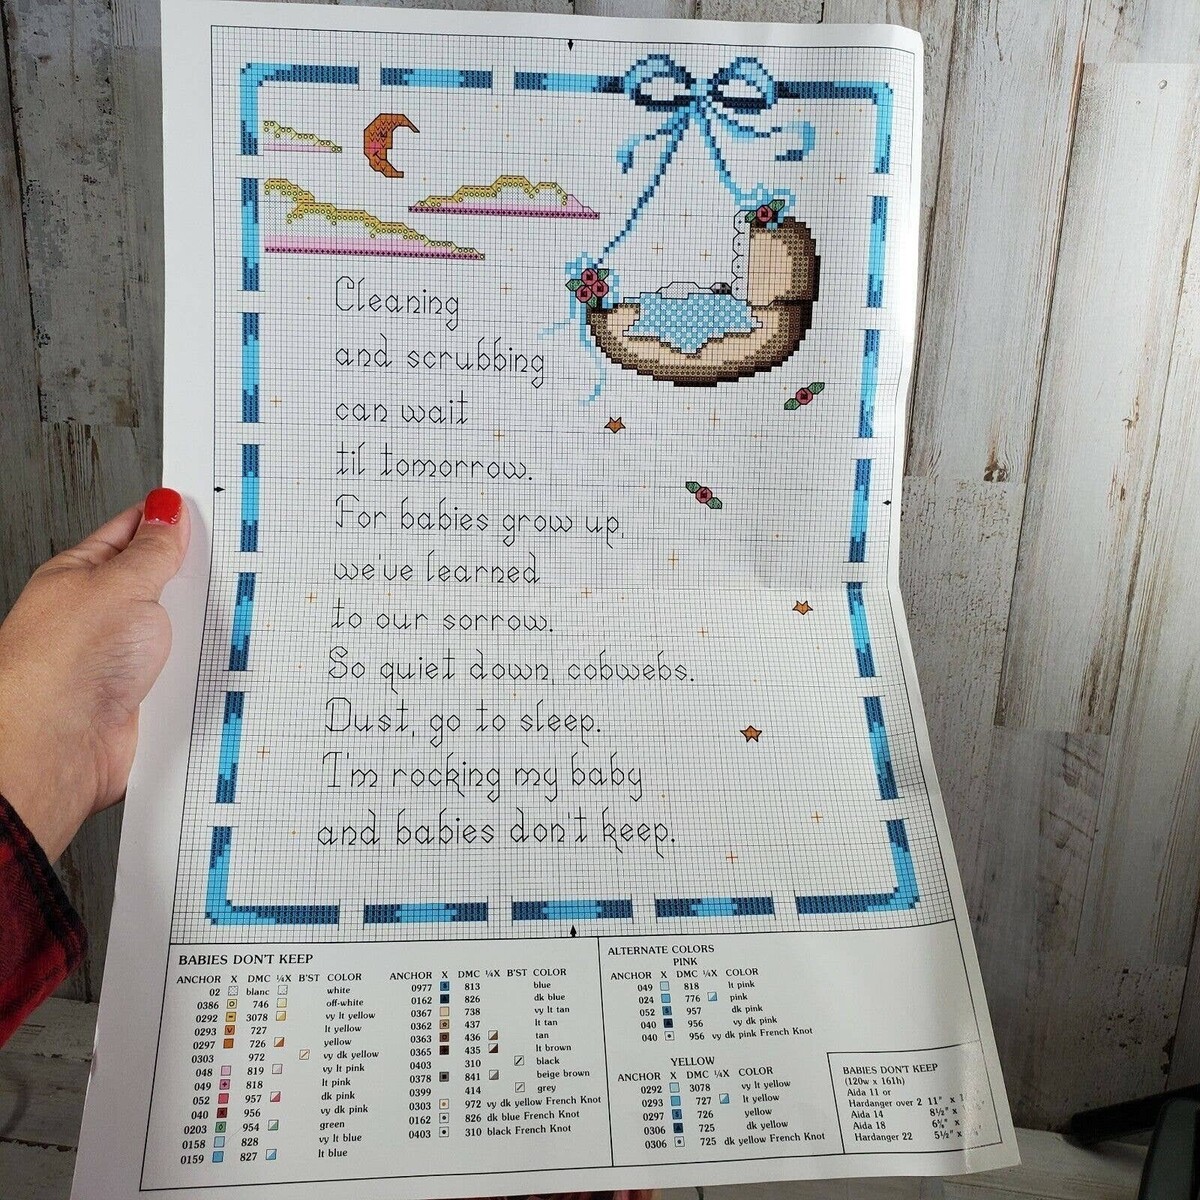 Cleaning
and scrubbing
can wait
til tomorrow.
For babies grow up,
we've learned
to our sorrow.
So quiet down, cobwebs.
Dust, go to sleep.
I'm rocking my baby
and babies don't keep.
BABIES DON'T KEEP
ANCHOR X DMC ¼X B'ST COLOR
02 blanc white
0386 746 off-white
0292 3078 vy lt yellow
0293 727 lt yellow
0297 726 yellow
0303 972 vy dk yellow
048 819 vy lt pink
049 818 lt pink
052 957 dk pink
040 956 vy dk pink
0203 954 green
0158 828 vy lt blue
0159 827 lt blue
ANCHOR X DMC ¼X B'ST COLOR
0977 813 blue
0162 826 dk blue
0367 738 vy lt tan
0362 437 lt tan
0363 436 tan
0365 435 lt brown
0403 310 black
0378 841 beige brown
0399 414 grey
0303 972 vy dk yellow French Knot
0162 826 dk blue French Knot
0403 310 black French Knot
ALTERNATE COLORS
PINK
ANCHOR X DMC ¼X COLOR
049 818 lt pink
024 776 pink
052 957 dk pink
040 956 vy dk pink
040 956 vy dk pink French Knot
YELLOW
ANCHOR X DMC ¼X COLOR
0292 3078 vy lt yellow
0293 727 lt yellow
0297 726 yellow
0306 725 dk yellow
0306 725 dk yellow French Knot
BABIES DON'T KEEP
(120w x 161h)
Aida 11 or
Hardanger over 2 11" x
Aida 14 8½" x
Aida 18 6⅝" x
Hardanger 22 5½" x